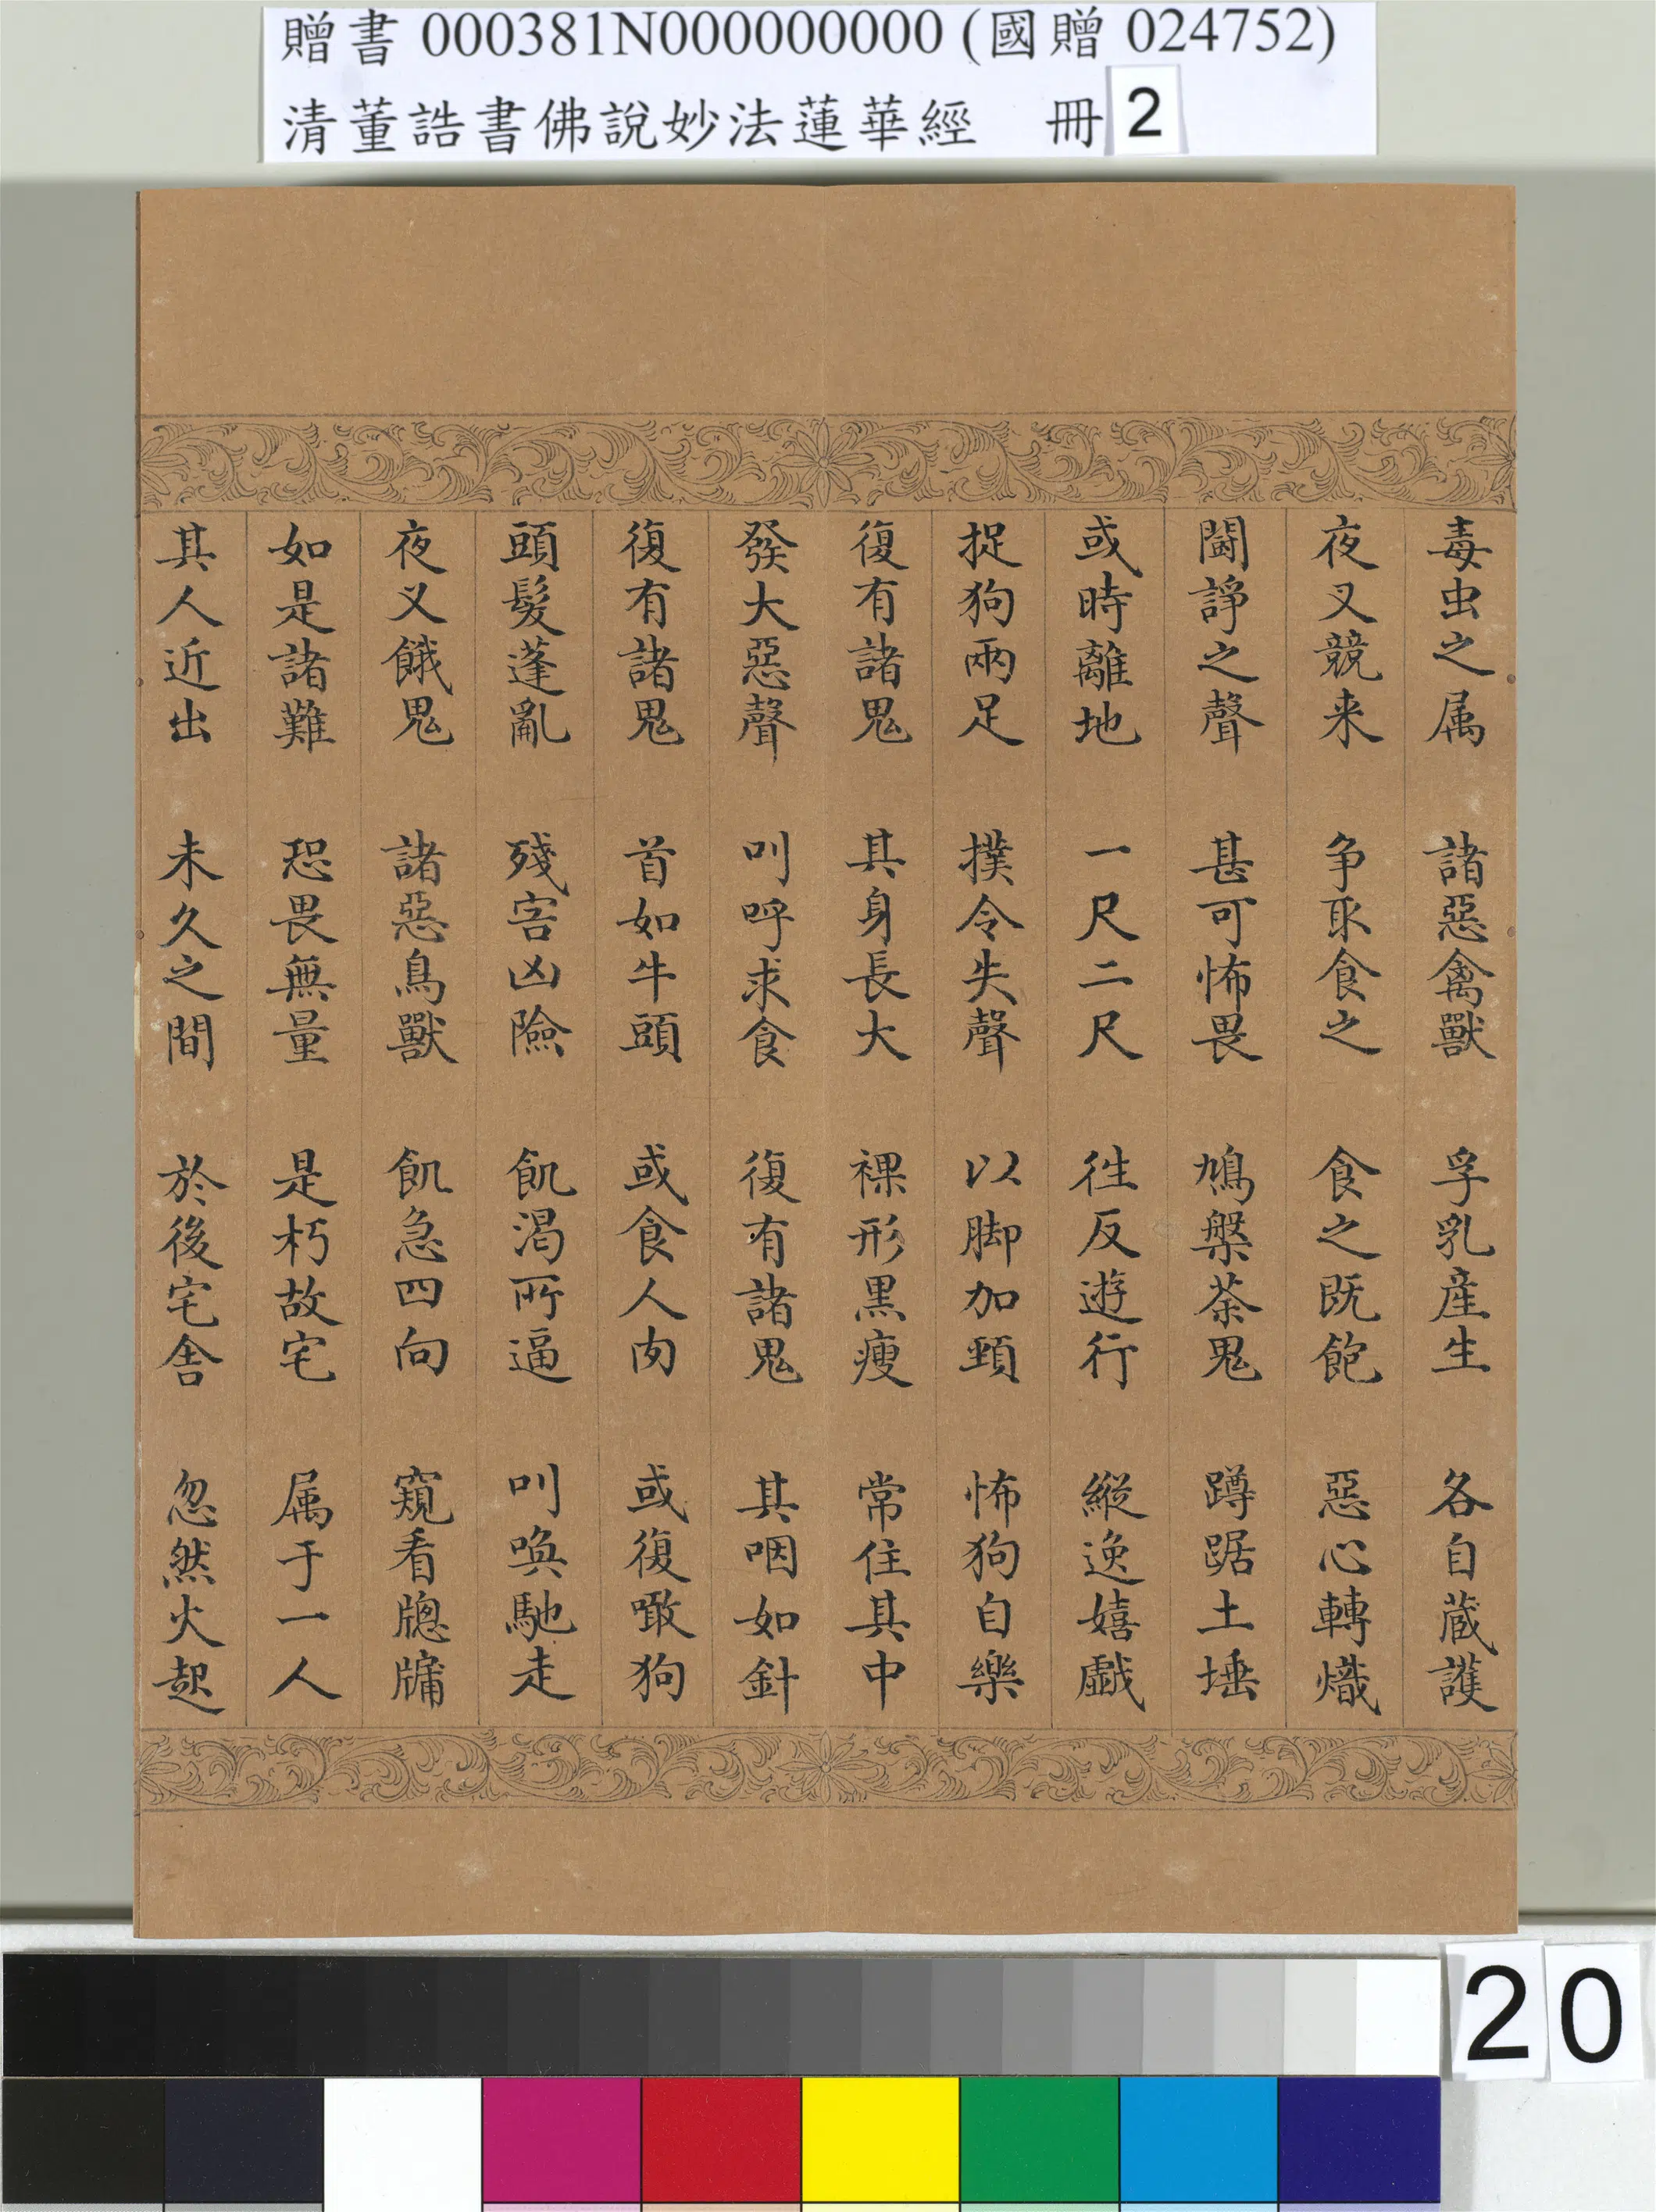 贈書 000381N000000000 (國贈 024752)
清董誥書佛說妙法蓮華經　冊 2
毒虫之属　諸惡禽獸　孚乳產生　各自蔵護
夜叉競来　争取食之　食之既飽　惡心轉熾
鬭諍之聲　甚可怖畏　鳩槃荼鬼　蹲踞土埵
或時離地　一尺二尺　徃反遊行　縱逸嬉戲
捉狗兩足　撲令失聲　以脚加頸　怖狗自樂
復有諸鬼　其身長大　裸形黒瘦　常住其中
發大惡聲　叫呼求食　復有諸鬼　其咽如針
復有諸鬼　首如牛頭　或食人肉　或復噉狗
頭髮蓬亂　殘害凶險　飢渴所逼　叫喚馳走
夜叉餓鬼　諸惡鳥獸　飢急四向　窺看牕牖
如是諸難　恐畏無量　是朽故宅　属于一人
其人近出　未久之間　於後宅舍　忽然火起
20